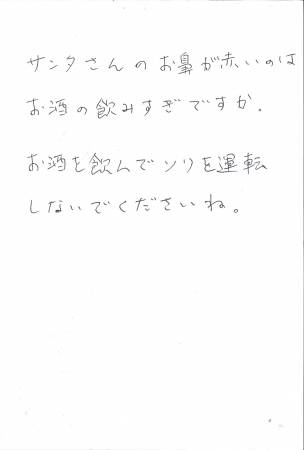 サンタさんのお鼻が赤いのは
お酒の飲みすぎですか.
お酒を飲んでソリを運転
しないでくださいね。